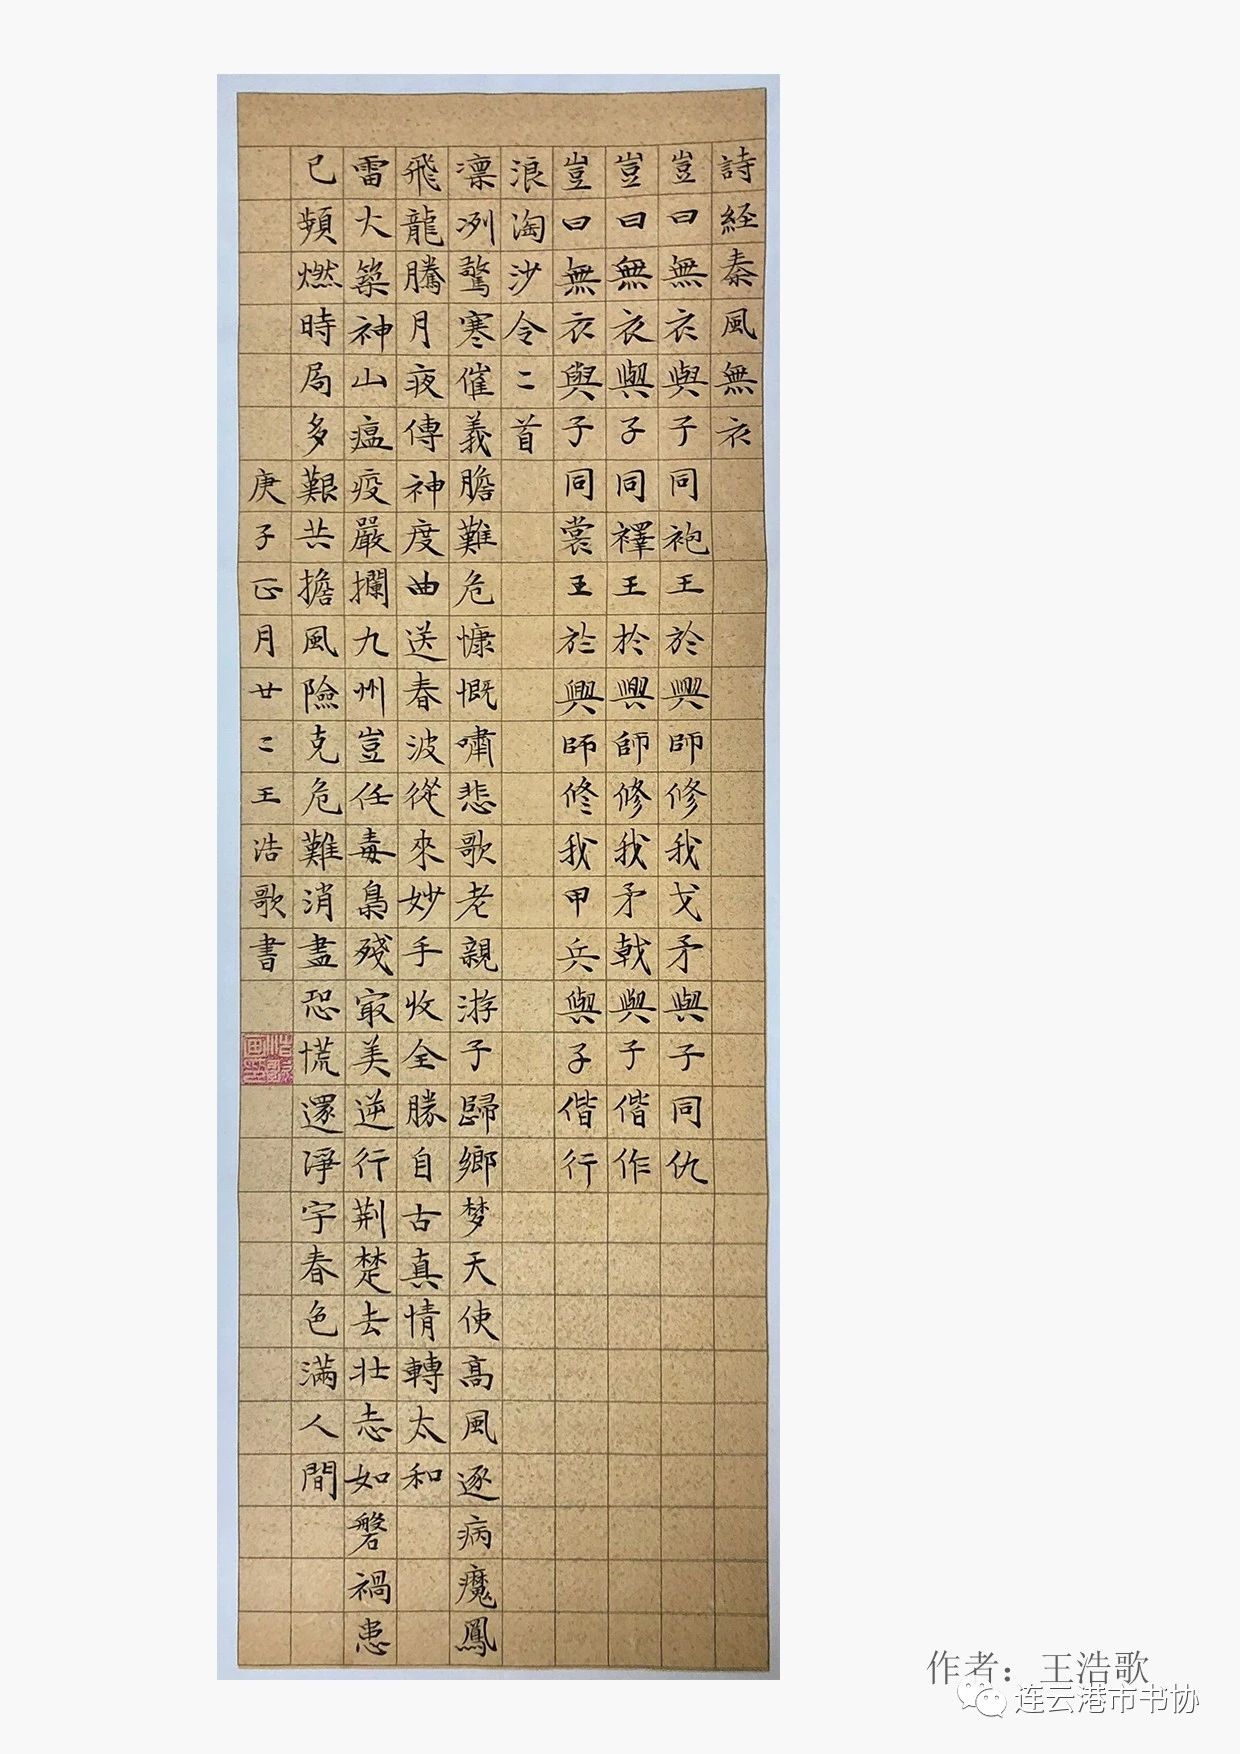 詩經秦風無衣
豈曰無衣與子同袍王於興師修我戈矛與子同仇
豈曰無衣與子同襗王於興師修我矛戟與子偕作
豈曰無衣與子同裳王於興師修我甲兵與子偕行
浪淘沙令二首
凜冽驚寒催義膽難危慷慨嘯悲歌老親游子歸鄉梦天使高風逐病魔鳳
飛龍騰月夜傳神度曲送春波從來妙手收全勝自古真情轉太和
雷火築神山瘟疫嚴攔九州豈任毒梟殘寂美逆行荆楚去壯志如磐禍患
已頻燃時局多艱共擔風險克危難消盡恐慌還淨宇春色滿人間
庚子正月廿二王浩歌書
作者：王浩歌
连云港市书协